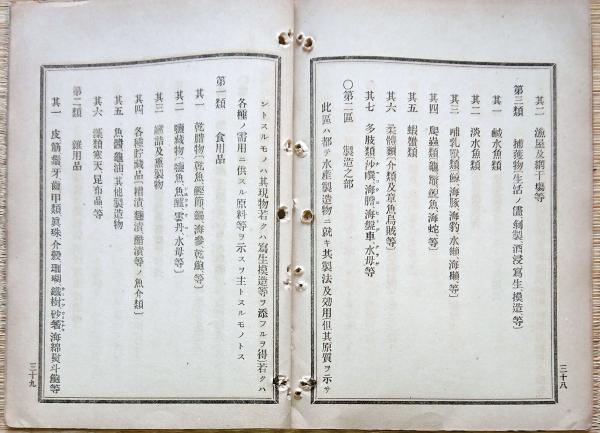 其二 漁屋及網干場等
第三類 捕獲物(生活ノ儘、剝製、酒浸、寫生、摸造等)
其一 鹹水魚類
其二 淡水魚類
其三 哺乳獸類(鯨、海豚、海豹、水獺、海獺等)
其四 爬蟲類(龜、鼈、魚、海蛇等)
其五 蝦蟹類
其六 柔軟類(介類及章魚烏賊等)
其七 多肢類(沙噀、海膽、海盤車、水母等
〇第二區 製造之部
此區ハ都テ水產製造物ニ就キ其製法及効用但其原質ヲ示サ
三十八
ントスルモノハ其現物若クハ寫生摸造等ヲ添フルヲ得)若クハ
各種ノ需用ニ供スル原料等ヲ示スヲ主トスルモノトス
第一類 食用品
其一 乾腊物(乾魚、鰹節、鯣、海參、乾鮑等)
其二 鹽藏物(鹽魚、魚醢、雲丹、水母等)
其三 罐詰及熏製物
其四 各種貯藏品(糟漬、麴漬、醋漬等ノ魚介類)
其五 魚醬、龜油其他製造物
其六 藻類寒天昆布品等
第二類 雜用品
其一 皮、筋、鬚、牙、齒、甲類、眞珠、介殼、珊瑚、鐵樹、砂箸、海綿、熨斗鮑等
三十九